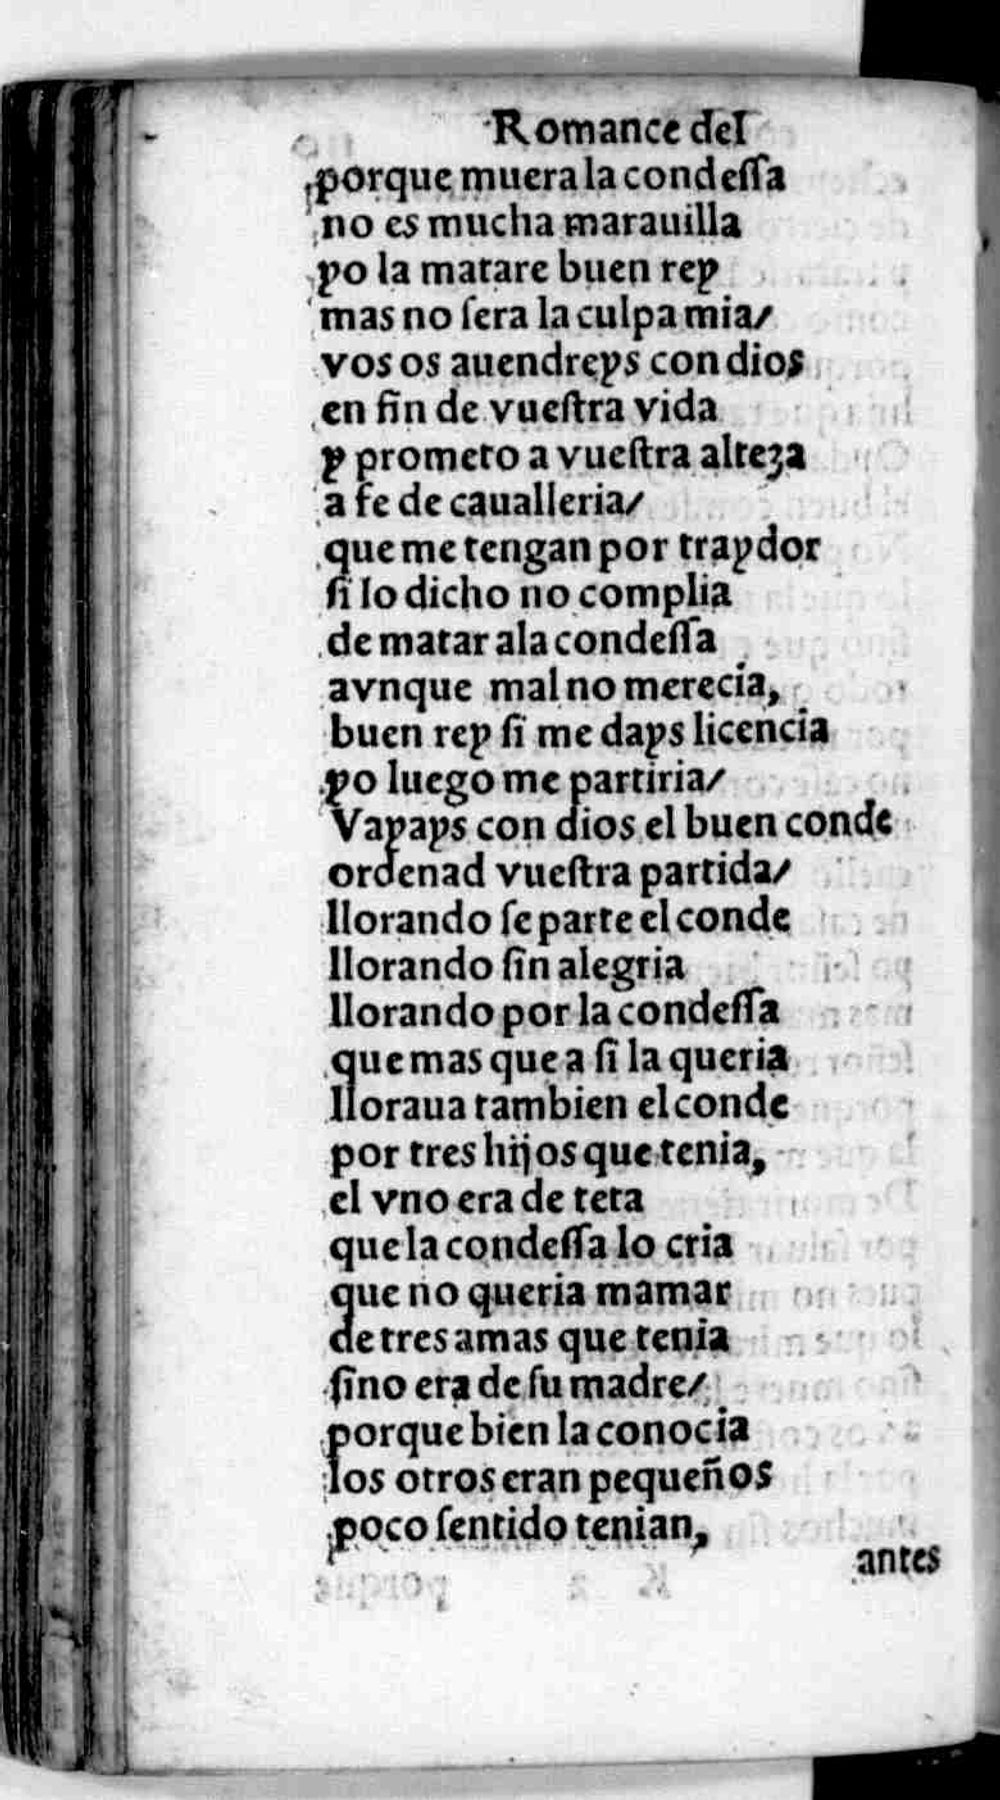 Romance del
porque muera la condessa
no es mucha marauilla
yo la matare buen rey
mas no sera la culpa mia/
vos os auendreys con dios
en fin de vuestra vida
y prometo a vuestra alteza
a fe de caualleria/
que me tengan por traydor
si lo dicho no complia
de matar ala condessa
avnque mal no merecia,
buen rey si me days licencia
yo luego me partiria/
Vayays con dios el buen conde
ordenad vuestra partida/
llorando se parte el conde
llorando sin alegria
llorando por la condessa
que mas que a si la queria
lloraua tambien el conde
por tres hijos que tenia,
el vno era de teta
que la condessa lo cria
que no queria mamar
de tres amas que tenia
sino era de su madre/
porque bien la conocia
los otros eran pequeños
poco sentido tenian,
antes